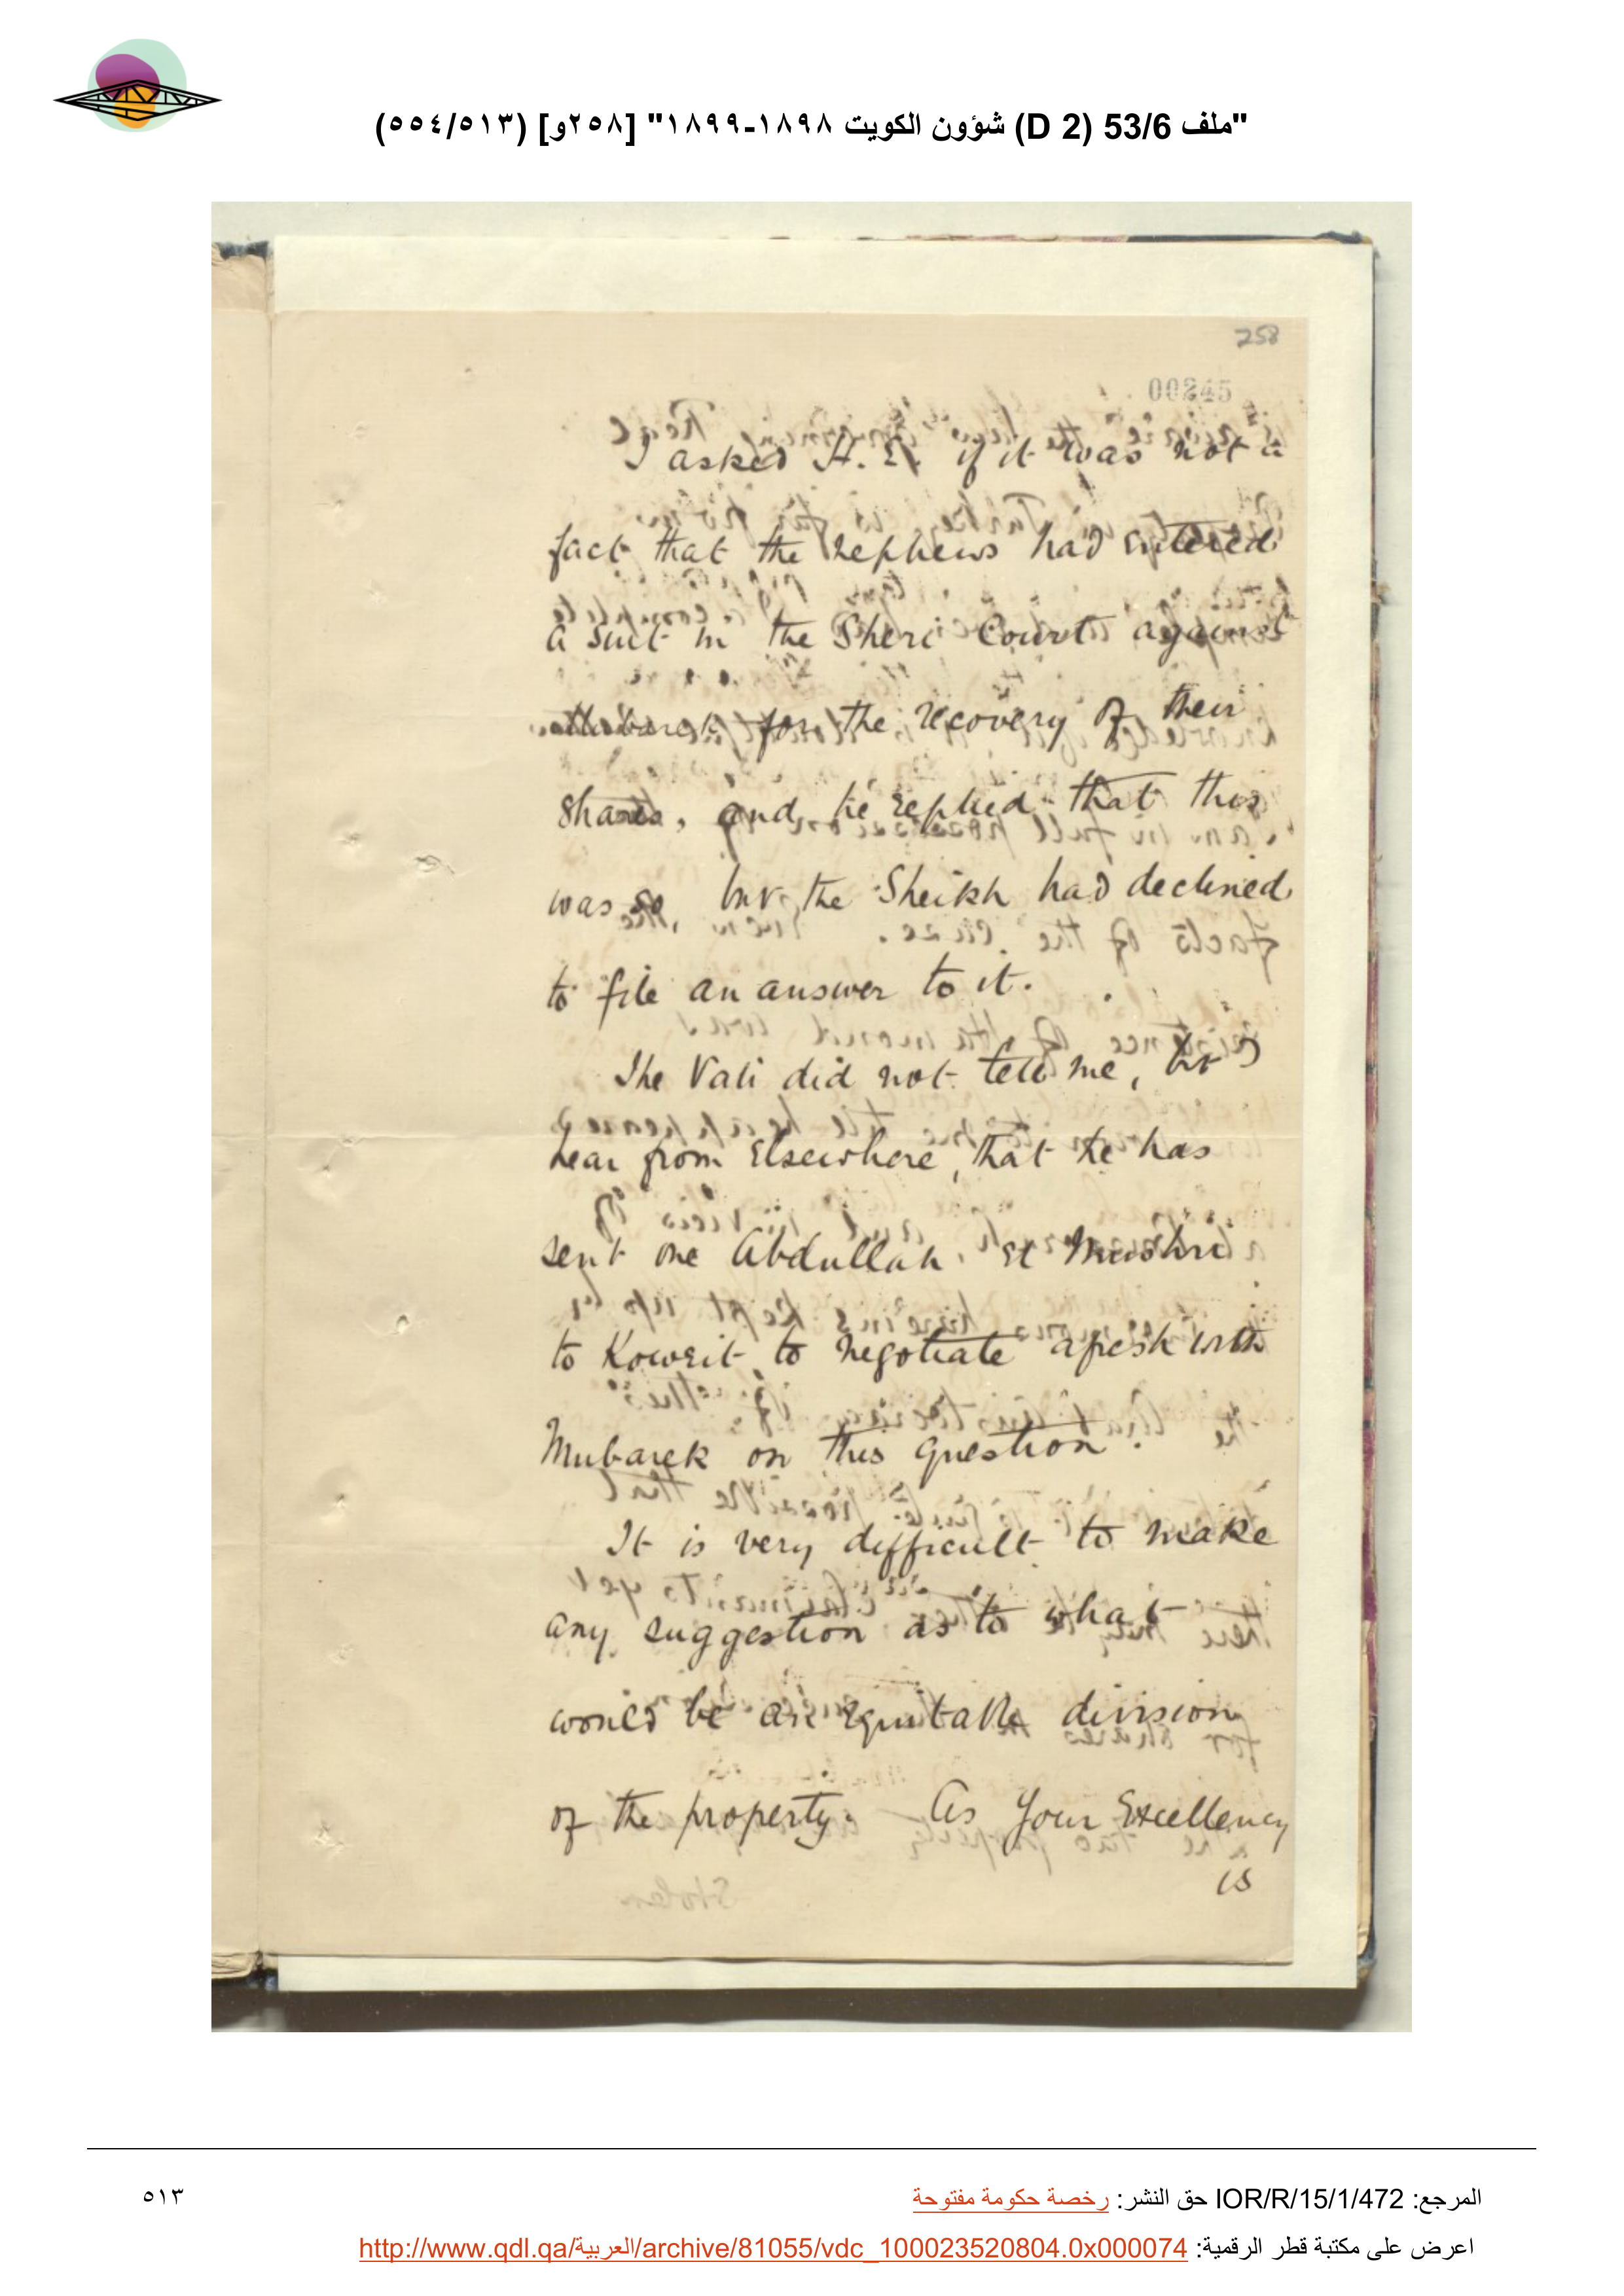 "ملف 53/6 (D 2) شؤون الكويت ١٨٩٨-١٨٩٩" [٢٥٨و] (٥١٣/٥٥٤)
258
00245
I asked H. E. if it was not a
fact that the nephews had entered
a suit in the Sheri Court against
Mubarek for the recovery of their
shares, and he replied that this
was so, but the Sheikh had declined
to file an answer to it.
The Vali did not tell me, but I
hear from elsewhere, that he has
sent one Abdullah el
to Koweit to negotiate afresh with
Mubarek on this question.
It is very difficult to make
any suggestion as to what
would be an equitable division
of the property. As Your Excellency
is
المرجع: IOR/R/15/1/472 حق النشر: رخصة حكومة مفتوحة
٥١٣
اعرض على مكتبة قطر الرقمية: http://www.qdl.qa/العربية/archive/81055/vdc_100023520804.0x000074